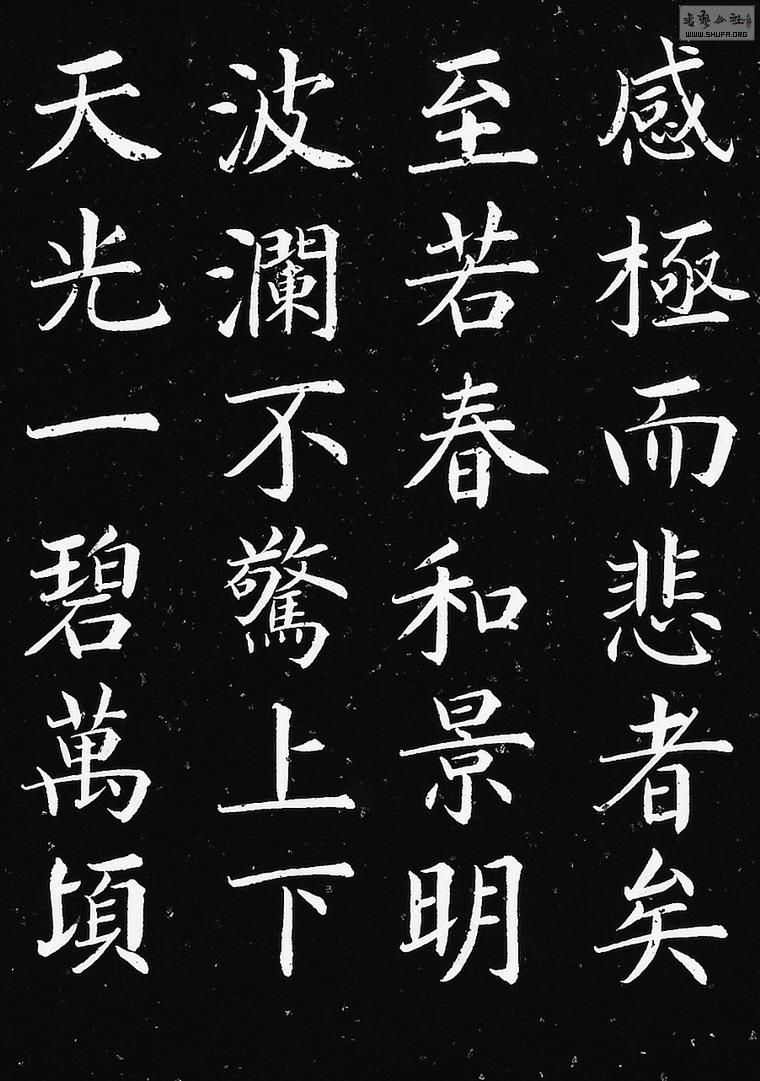 感極而悲者矣
至若春和景明
波瀾不驚上下
天光一碧萬頃
書藝公社
WWW.SHUFA.ORG